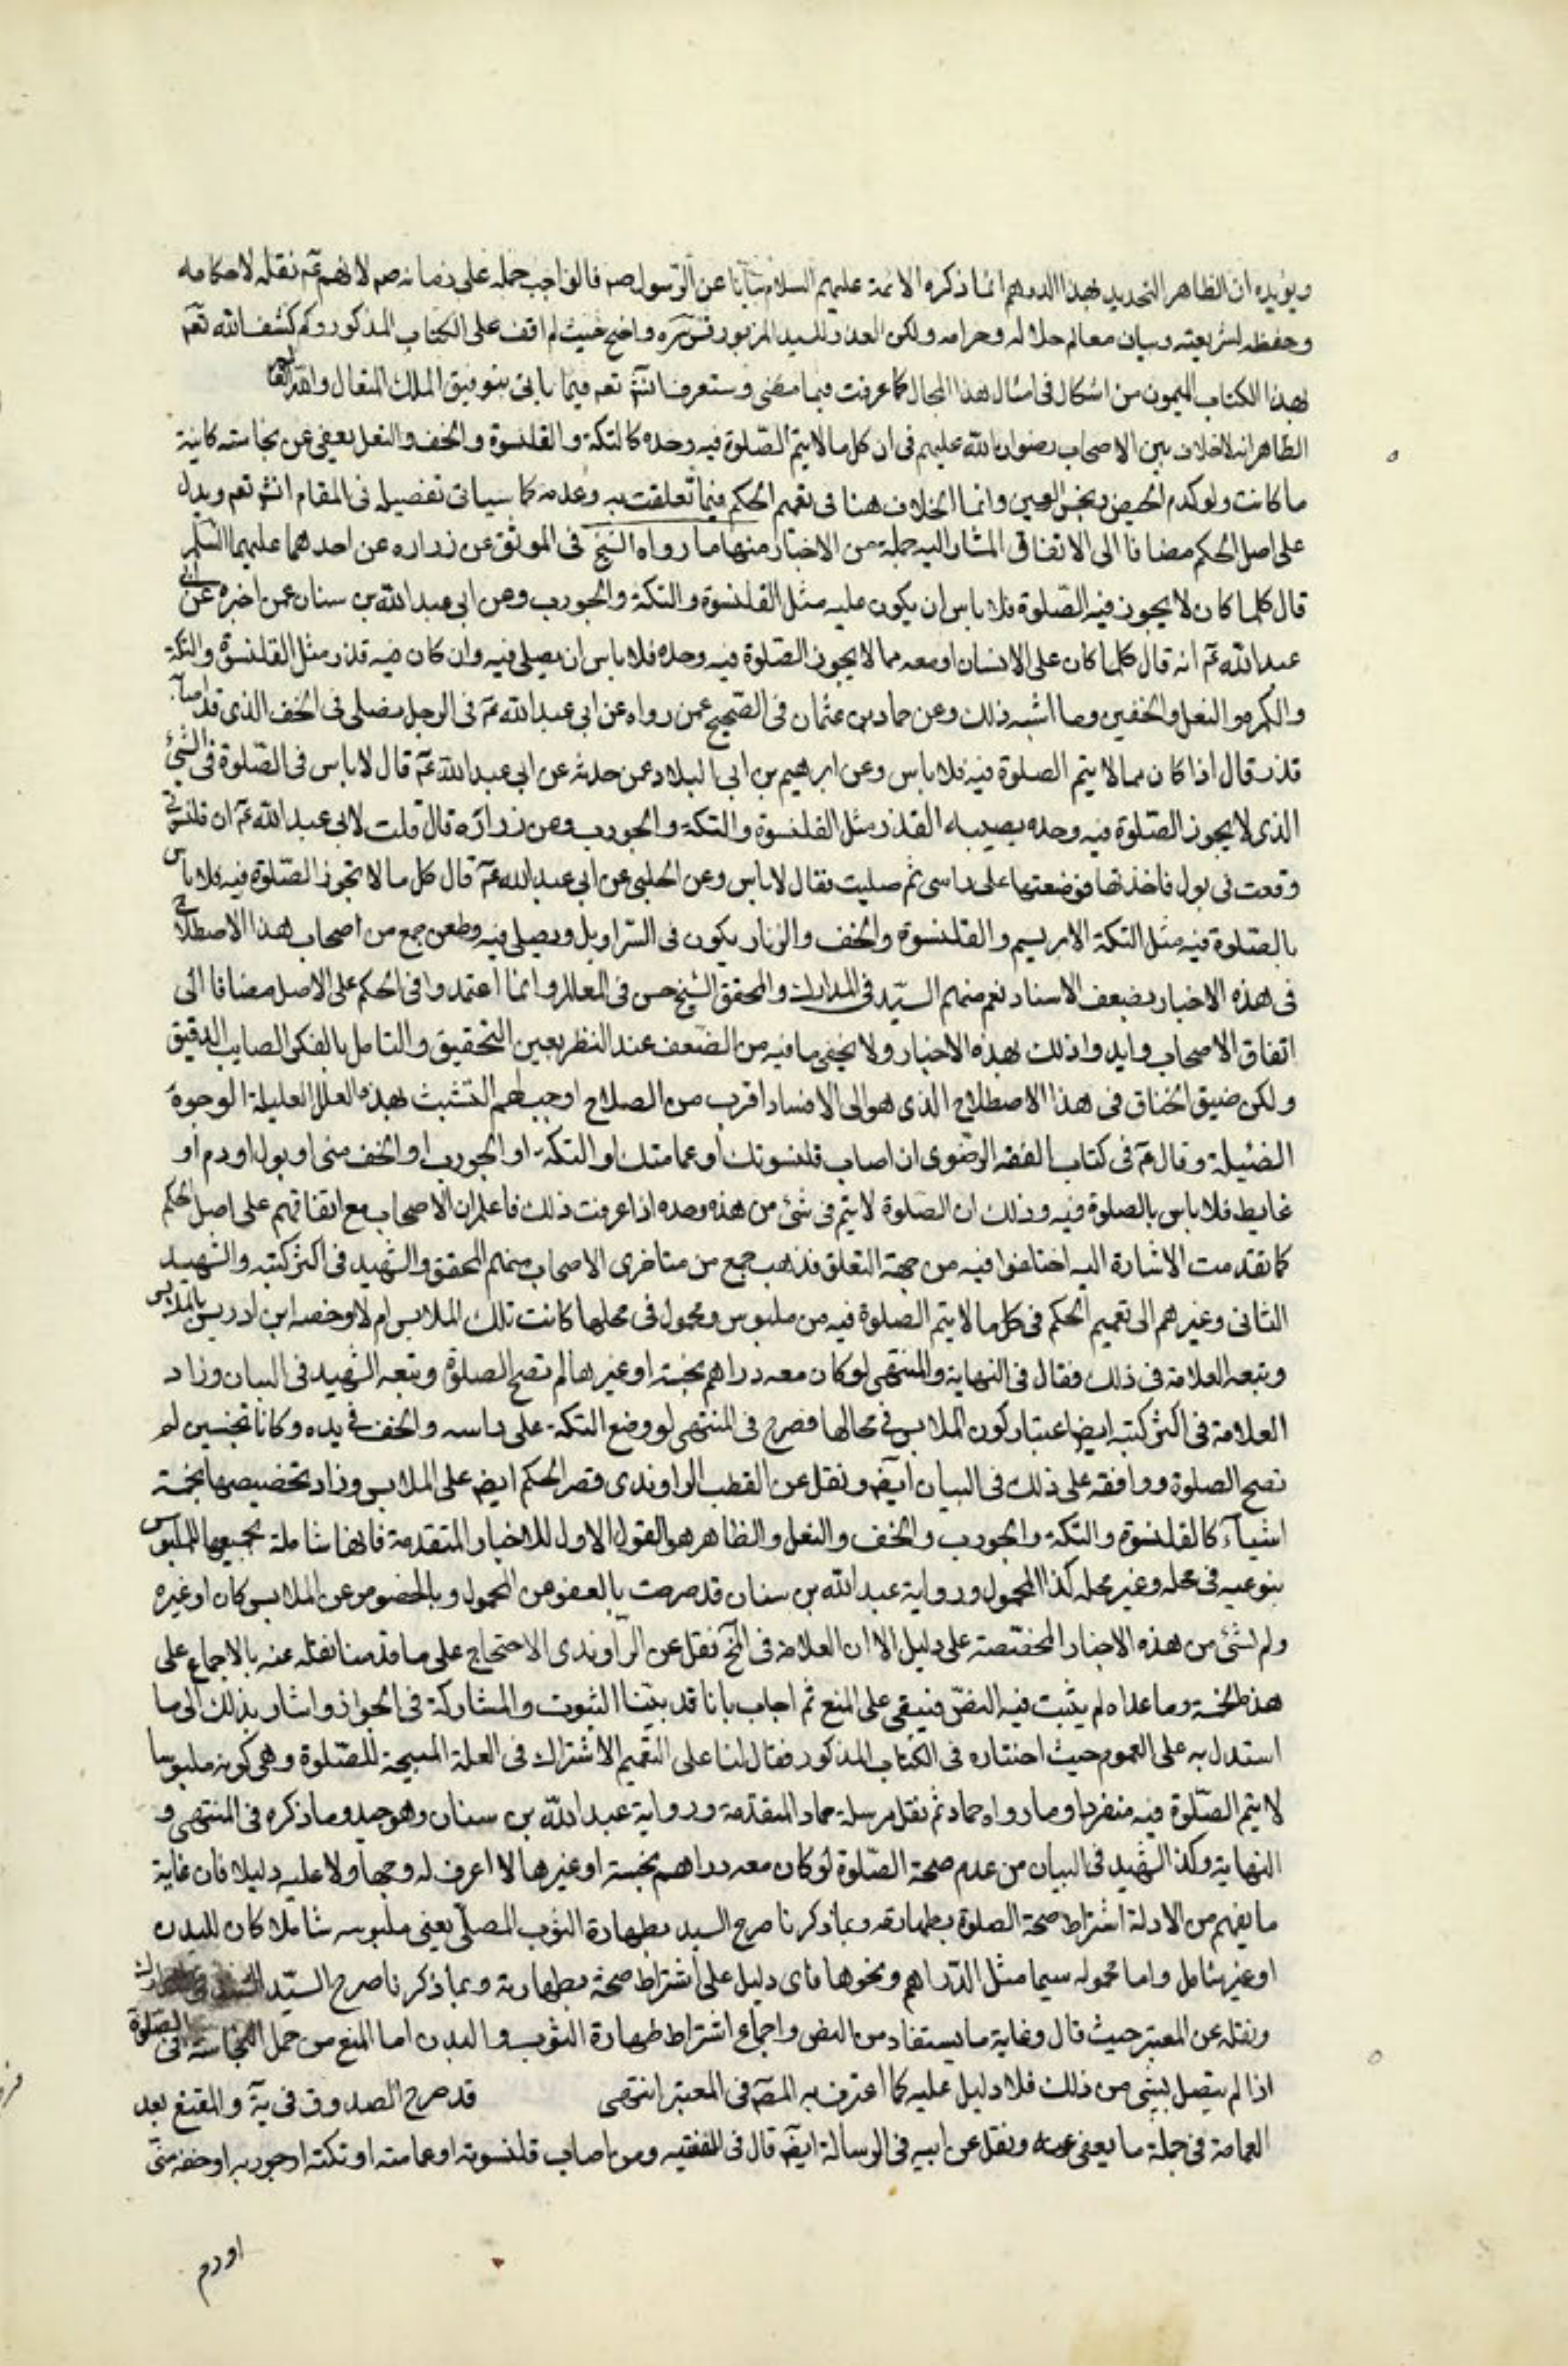 ويؤيده ان الظاهر التحديد بهذا الدرهم انما ذكره الائمة عليهم السلام عن الرسول صم فالواجب حمله على زمانه صم لانهم عم نقلة لاحكامه
وحفظة لشريعته وبيان معالم حلاله وحرامه ولكن العذر للسيد المزبور قدس سره واضح حيث لم اقف على الكتاب المذكور وكم كشف الله تعم
بهذا الكتاب الميمون من اشكال فى امثال هذا المجال كما عرفت فيما مضى وستعرف انش تعم فيما ياتى بتوفيق الملك المتعال
الظاهر انه لاخلاف بين الاصحاب رضوان الله عليهم فى ان كل ما لا يتم الصلوة فيه وحده كالتكة والقلنسوة والخف والنعل يعفى عن نجاسته كائنة
ما كانت ولو كدم الحيض ونجس العين وانما الخلاف هنا فى تعميم الحكم فيما تعلقت به وعدمه كما سياتى تفصيله فى المقام انش تعم ويدل
على اصل الحكم مضافا الى الاتفاق المشار اليه جملة من الاخبار منها ما رواه الشيخ فى الموثق عن زراره عن احدهما عليهما السلم
قال كلما كان لا يجوز فيه الصلوة فلا باس ان يكون عليه مثل القلنسوة والتكة والجورب وعن ابى عبد الله بن سنان عمن اخبره عن ابى
عبد الله عم انه قال كلما كان على الانسان او معه مما لا يجوز الصلوة فيه وحده فلا باس ان يصلى فيه وان كان فيه قذر مثل القلنسوة والتكة
والكمره والنعل والخفين وما اشبه ذلك وعن حماد بن عثمان فى الصحيح عمن رواه عن ابى عبد الله عم فى الرجل يصلى فى الخف الذى قد اصابه
قذر قال اذا كان مما لا يتم الصلوة فيه فلا باس وعن ابرهيم بن ابى البلاد عمن حدثه عن ابى عبد الله عم قال لا باس فى الصلوة فى الشئ
الذى لا يجوز الصلوة فيه وحده يصيبه القذر مثل القلنسوة والتكة والجورب وعن زرارة قال قلت لابى عبد الله عم ان قلنسوتى
وقعت فى بول فاخذتها فوضعتها على راسى ثم صليت فقال لا باس وعن الحلبى عن ابى عبد الله عم قال كل ما لا تجوز الصلوة فيه فلا باس
بالصلوة فيه مثل التكة الابريسم والقلنسوة والخف والزنار يكون فى السراويل ويصلى فيه وطعن جمع من اصحاب هذا الاصطلاح
فى هذه الاخبار بضعف الاسناد نعم منهم السيد فى المدارك والمحقق الشيخ حسن فى المعالم وانما اعتمدوا فى الحكم على الاصل مضافا الى
اتفاق الاصحاب وايدوا ذلك بهذه الاخبار ولا يخفى ما فيه من الضعف عند النظر بعين التحقيق والتامل بالفكر الصايب الدقيق
ولكن ضيق الخناق فى هذا الاصطلاح الذى هو الى الافساد اقرب من الصلاح اوجب لهم التشبث بهذه العلل العليلة الوجوة
الضئيلة وقال عم فى كتاب الفقه الرضوى ان اصاب قلنسوتك او عمامتك او التكة او الجورب او الخف منى او بول او دم او
غايط فلا باس بالصلوة فيه وذلك ان الصلوة لا يتم فى شئ من هذه وحده اذا عرفت ذلك فاعلم ان الاصحاب مع اتفاقهم على اصل الحكم
كما تقدمت الاشارة اليه اختلفوا فيه من جهة التعلق فذهب جمع من متاخرى الاصحاب منهم المحقق والشهيد فى اكثر كتبه والشهيد
الثانى وغيرهم الى تعميم الحكم فى كل ما لا يتم الصلوة فيه من ملبوس ومحمول فى محلها كانت تلك الملابس ام لا وخصه ابن ادريس بالملابس
وتبعه العلامة فى ذلك فقال فى النهاية والمنتهى لو كان معه دراهم نجسة او غيرها لم تصح الصلوة وتبعه الشهيد فى البيان وزاد
العلامة فى اكثر كتبه ايضا اعتبار كون الملابس فى محالها فصرح فى المنتهى لو وضع التكة على راسه والخف فى يده وكانا نجسين لم
تصح الصلوة ووافقه على ذلك فى البيان ايضا ونقل عن القطب الراوندى قصر الحكم ايضا على الملابس وزاد تخصيصها بخمسة
اشيآء كالقلنسوة والتكة والجورب والخف والنعل والظاهر هو القول الاول للاخبار المتقدمة فانها شاملة بجميعها للملبوس
بنوعيه فى محله وغير محله كذا المحمول ورواية عبد الله بن سنان قد صرحت بالعفو عن المحمول وبالخصوص عن الملابس كان او غيره
ولم لشئ من هذه الاخبار المخصصة على دليل الا ان العلامة فى المخ نقل عن الراوندى الاحتجاج على ما قدمنا نقله عنه بالاجماع على
هذه الخمسة وما عداه لم يثبت فيه النص فيبقى على المنع ثم اجاب بانا قد بينا الثبوت والمشاركة فى الجواز واشار بذلك الى ما
استدل به على العموم حيث اختاره فى الكتاب المذكور فقال لنا على التعميم الاشتراك فى العلة المبيحة للصلوة وهى كونه ملبوسا
لا يتم الصلوة فيه منفردا وما رواه حماد ثم نقل مرسلة حماد المتقدمة ورواية عبد الله بن سنان وهو جيد وما ذكره فى المنتهى و
النهاية وكذا الشهيد فى البيان من عدم صحة الصلوة لو كان معه دراهم نجسة او غيرها لا اعرف له وجها ولا عليه دليلا فان غاية
ما يفهم من الادلة اشتراط صحة الصلوة بطهارته وبما ذكرنا صرح السيد بطهارة الثوب المصلى يعنى ملبوسه شاملا كان للبدن
او غير شامل واما محموله سيما مثل الدراهم ونحوها فاى دليل على اشتراط صحة بطهارته وبما ذكرنا صرح السيد
ونقله عن المعتبر حيث قال وغاية ما يستفاد من النص واجماع اشتراط طهارة الثوب والبدن اما المنع من حمل النجاسة فى الصلوة
اذا لم يتصل بشئ من ذلك فلا دليل عليه كما اعترف به المصم فى المعتبر انتهى قد صرح الصدوق فى يه والمقنع بعد
العمامة فى جملة ما يعفى عنه ونقل عن ابيه فى الرسالة ايضا قال فى الفقيه ومن اصاب قلنسوته او عمامته او تكته او جوربه او خفه منى
او دم